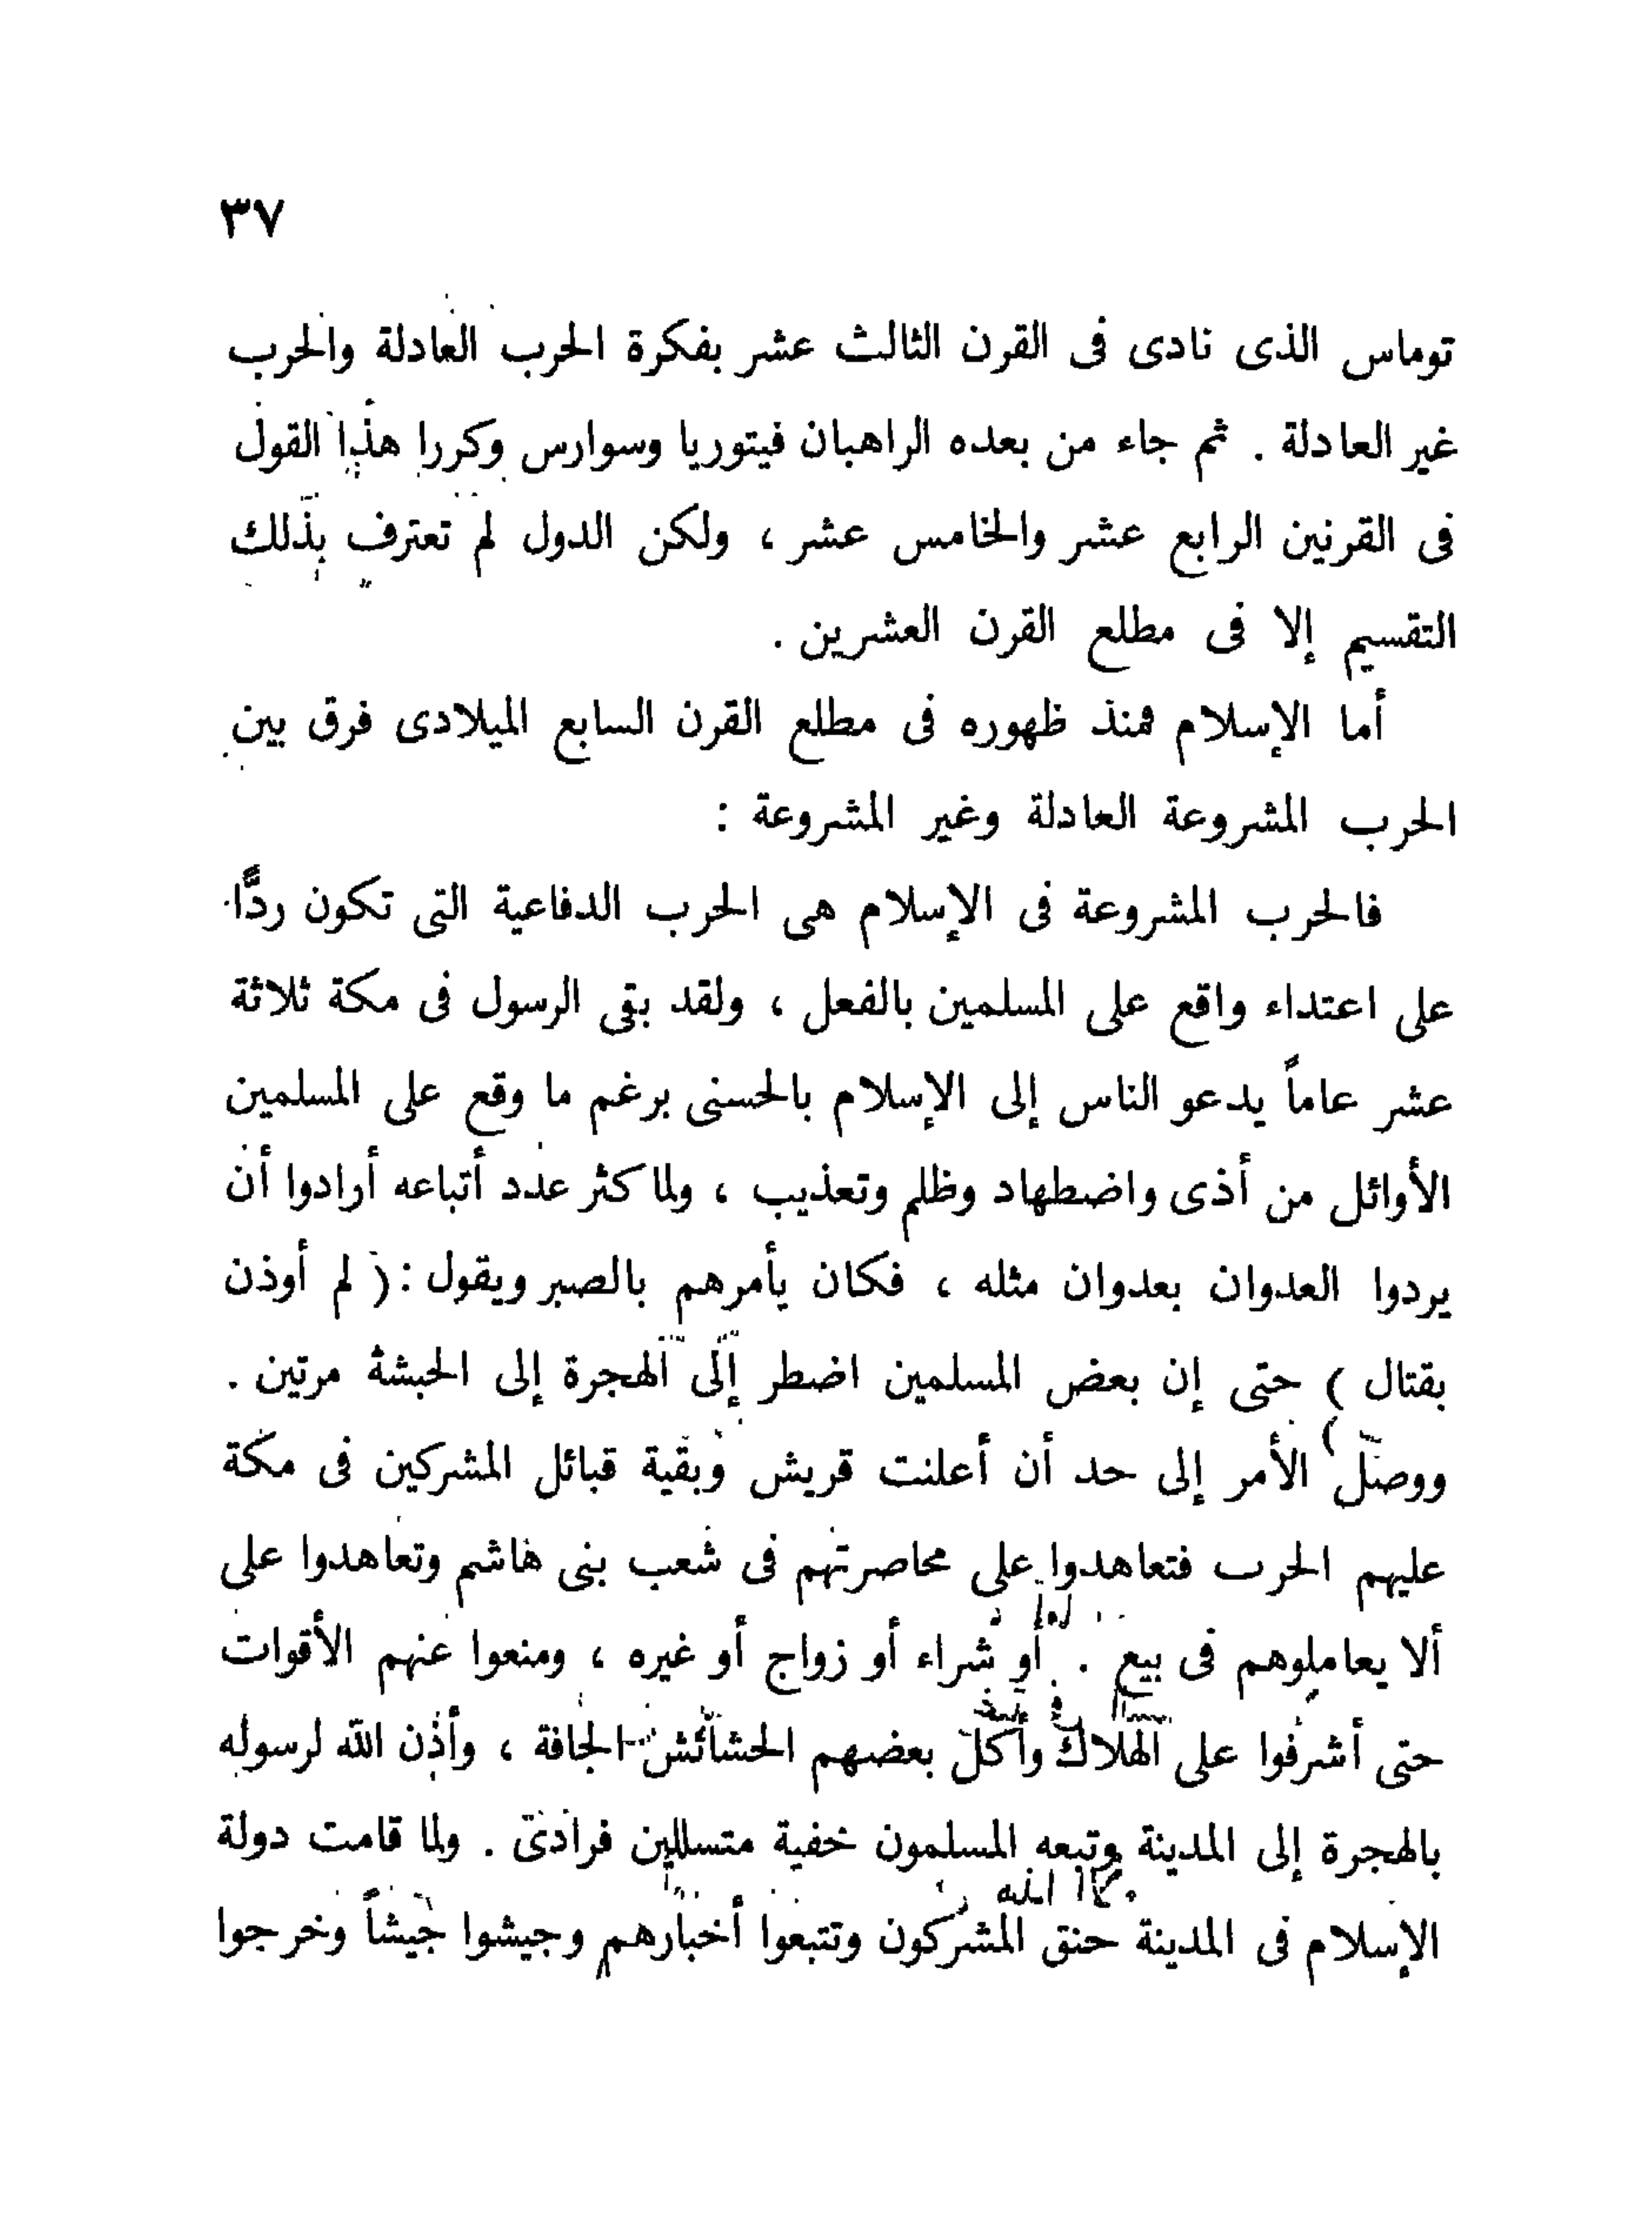 ٣٧
توماس الذى نادى فى القرن الثالث عشر بفكرة الحرب العادلة والحرب
غير العادلة . ثم جاء من بعده الراهبان فيتوريا وسوارس وكررا هذا القول
فى القرنين الرابع عشر والخامس عشر ، ولكن الدول لم تعترف بذلك
التقسيم إلا فى مطلع القرن العشرين .
أما الإسلام فمنذ ظهوره فى مطلع القرن السابع الميلادى فرق بين
الحرب المشروعة العادلة وغير المشروعة :
فالحرب المشروعة فى الإسلام هى الحرب الدفاعية التى تكون ردًّا
على اعتداء واقع على المسلمين بالفعل ، ولقد بقى الرسول فى مكة ثلاثة
عشر عاماً يدعو الناس إلى الإسلام بالحسنى برغم ما وقع على المسلمين
الأوائل من أذى واضطهاد وظلم وتعذيب ، ولما كثر عدد أتباعه أرادوا أن
يردوا العدوان بعدوان مثله ، فكان يأمرهم بالصبر ويقول : ( لم أوذن
بقتال ) حتى إن بعض المسلمين اضطر إلى الهجرة إلى الحبشة مرتين .
ووصل الأمر إلى حد أن أعلنت قريش وبقية قبائل المشركين فى مكة
عليهم الحرب فتعاهدوا على محاصرتهم فى شعب بنى هاشم وتعاهدوا على
ألا يعاملوهم فى بيع . أو شراء أو زواج أو غيره ، ومنعوا عنهم الأقوات
حتى أشرفوا على الهلاك وأكل بعضهم الحشائش الجافة ، وأذن الله لرسوله
بالهجرة إلى المدينة وتبعه المسلمون خفية متسللين فرادى . ولما قامت دولة
الإسلام فى المدينة حنق المشركون وتتبعوا أخبارهم وجيشوا جيشاً وخرجوا